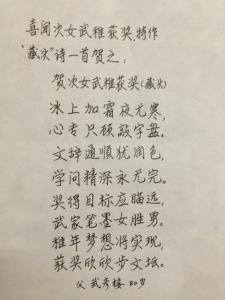 喜闻次女武稚获奖，特作
“藏头”诗一首贺之：
贺次女武稚获奖（藏头）
冰上加霜夜尤寒，
心专只顾敲字盘。
文辞通顺犹润色，
学问精深永无完。
奖得目标应瞄远，
武家笔墨女胜男。
稚年梦想将实现，
获奖欣欣步文坛。
父 武考楼 80岁